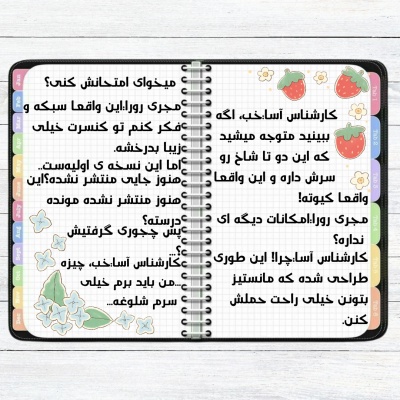 کارشناس آسا:خب، اگه
ببینید متوجه میشید
که این دو تا شاخ رو
سرش داره و این واقعا
واقعا کیوته!
مجری رورا:امکانات دیگه ای
نداره؟
کارشناس آسا:چرا! این طوری
طراحی شده که مانستیز
بتونن خیلی راحت حملش
کنن.
میخوای امتحانش کنی؟
مجری رورا:این واقعا سبکه و
فکر کنم تو کنسرت خیلی
زیبا بدرخشه.
اما این نسخه ی اولیه‌ست..
هنوز جایی منتشر نشده؟این
هنوز منتشر نشده مونده
درسته؟
پس چجوری گرفتیش
؟...
کارشناس آسا:خب، چیزه
...من باید برم خیلی
سرم شلوغه...